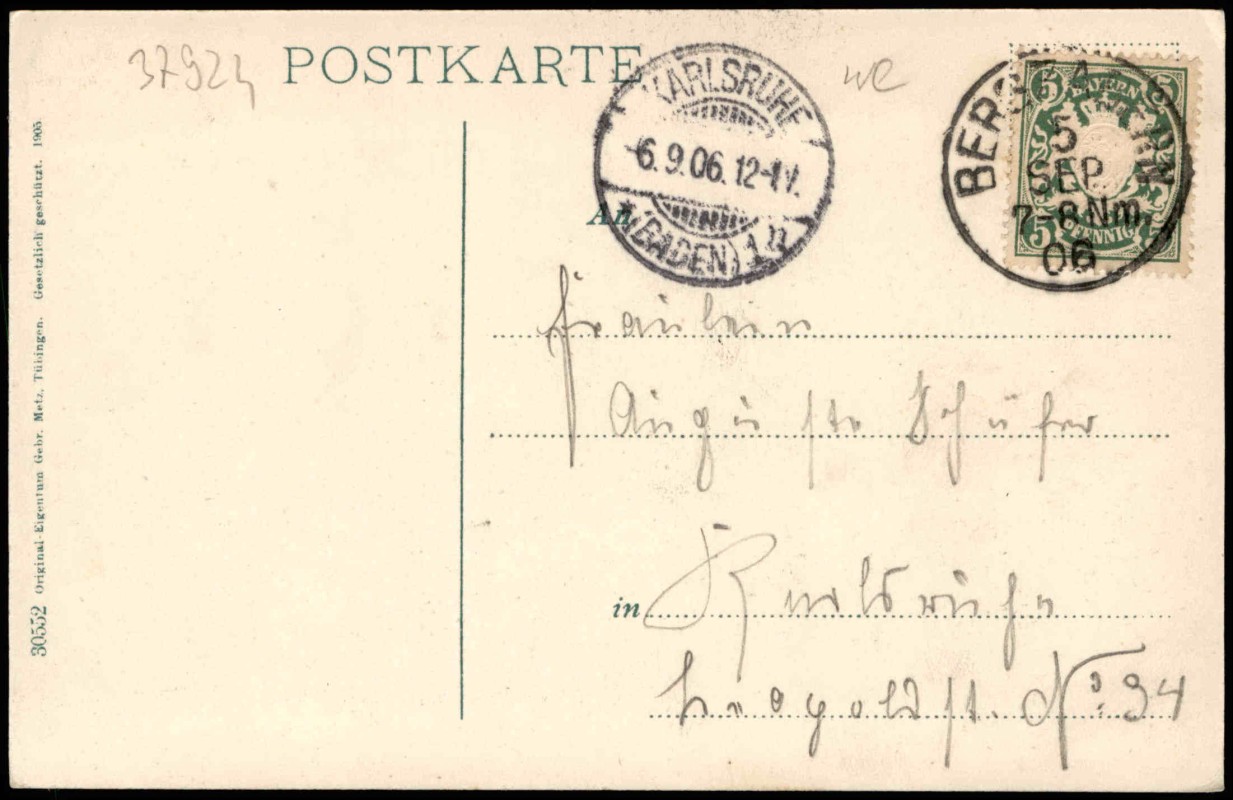 37924
POSTKARTE
KARLSRUHE
6.9.06.12-1V.
(BADEN) 1
BERGZABERN
5
SEP.
7-8Nm.
06
BAYERN
5 5
5 PFENNIG
An
Fräulein
Auguste Schäfer
in Karlsruhe
Leopoldst. No: 34
30552 Original-Eigentum Gebr. Metz, Tübingen. Gesetzlich geschützt. 1905